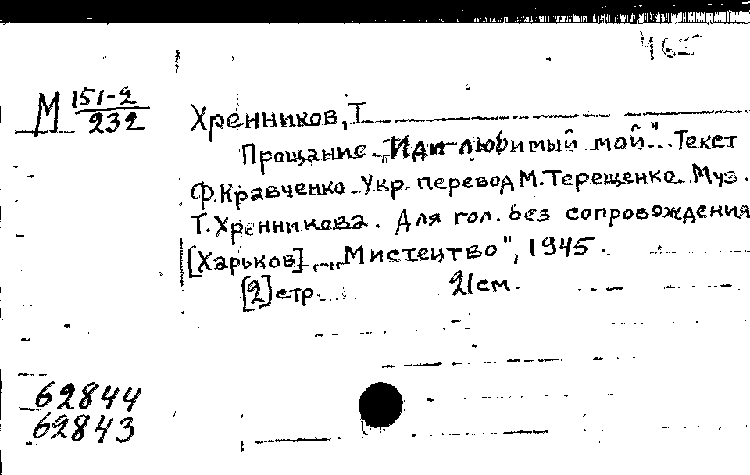 465
М 151-2/232
Хренников, Т
Прощание „Иди любимый мой". Текст
Ф. Кравченко. Укр. перевод М. Терещенко. Муз.
Т. Хренникова. Для гол. без сопровождения
[Харьков] „Мистецтво", 1945.
[2] стр. 21 см.
62844
62843